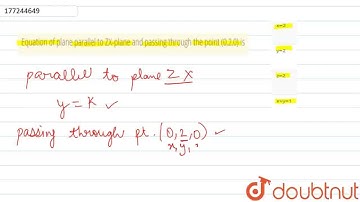 177244649
Equation of plane parallel to ZX-plane and passing through the point (0,2,0) is
parallel to plane ZX
y = K ✓
passing through pt. (0, 2, 0) ✓
x, y,
doubtnut